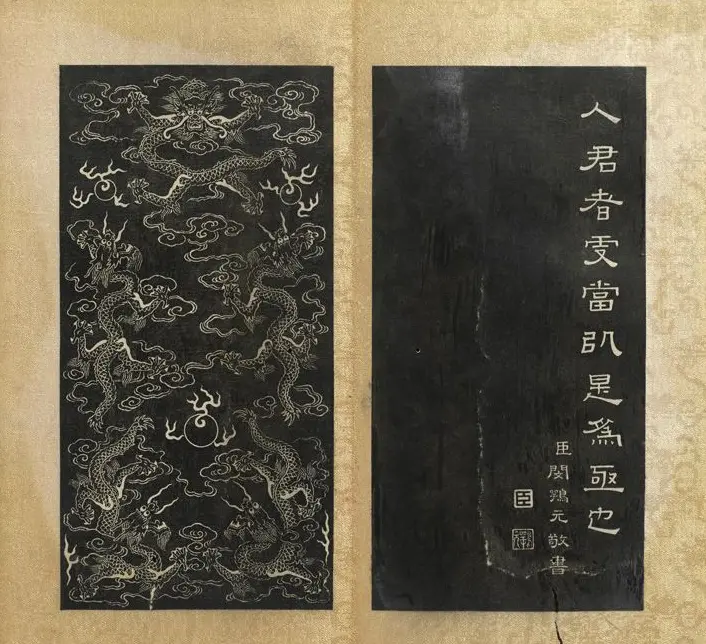 人君者更當以是爲亟也
臣閔鶚元敬書
臣